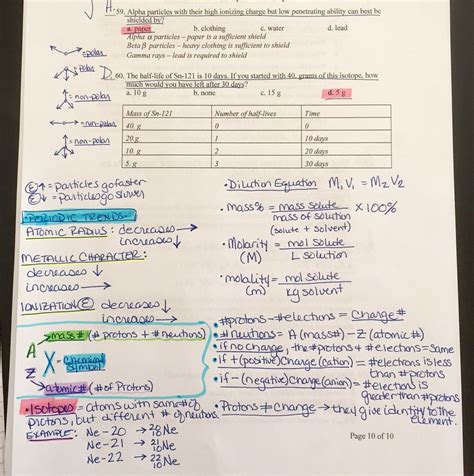 A
59. Alpha particles with their high ionizing charge but low penetrating ability can best be
shielded by?
a. paper b. clothing c. water d. lead
Alpha α particles – paper is a sufficient shield
Beta β particles – heavy clothing is sufficient to shield
Gamma rays – lead is required to shield
D
60. The half-life of Sn-121 is 10 days. If you started with 40. grams of this isotope, how
much would you have left after 30 days?
a. 10 g b. none c. 15 g d. 5 g
Mass of Sn-121 Number of half-lives Time
40. g 0 0
20.g 1 10 days
10. g 2 20 days
5. g 3 30 days
=polar
=polar
=non-polar
=non-polar
=non-polar
E↑ = particles go faster
E↓ = particles go slower
• PERIODIC TRENDS •
ATOMIC RADIUS: decreases →
increases ↓
METALLIC CHARACTER:
decreases →
increases ↓
IONIZATION E: decreases ↓
increases →
A → mass # (# protons + # neutrons)
X - chemical symbol
Z → atomic # (# of Protons)
• Isotopes = atoms with same # of
protons, but different # of neutrons.
EXAMPLE: Ne-20 → 20 10 Ne
Ne-21 → 21 10 Ne
Ne-22 → 22 10 Ne
• Dilution Equation M₁V₁ = M₂V₂
• mass% = mass solute / mass of solution × 100%
(solute + solvent)
• Molarity (M) = mol solute / L solution
• molality (m) = mol solute / kg solvent
• #protons - #electrons = Charge #
• # neutrons = A (mass#) - Z (atomic #)
• if no charge, the # protons + # electrons = Same
• if + (positive) Charge (cation) = #electrons is less
than # protons
• if - (negative) Charge (anion) = #electrons is
greater than # protons
• Protons ≠ Change → they give identity to the
element.
Page 10 of 10